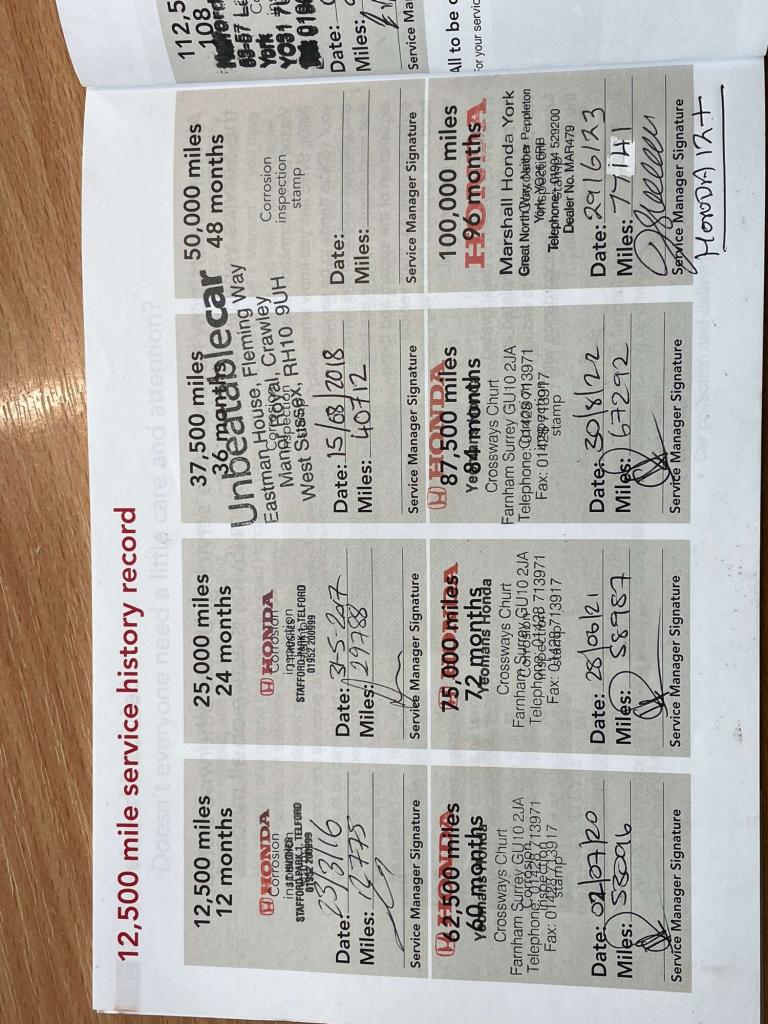 12,500 mile service history record
Doesn't everyone need a little care and attention?
12,500 miles
12 months
HONDA
Corrosion
STAFFORD PARK 1, TELFORD
01952 200999
Date: 23/3/16
Miles: 12775
Service Manager Signature
25,000 miles
24 months
HONDA
Corrosion
inspection
STAFFORD PARK 1, TELFORD
01952 200999
Date: 31-5-207
Miles: 29788
Service Manager Signature
37,500 miles
36 months
Unbeatablecar
Eastman House, Fleming Way
Manor Royal, Crawley
West Sussex, RH10 9UH
Date: 15/08/2018
Miles: 40712
Service Manager Signature
50,000 miles
48 months
Corrosion
inspection
stamp
Date:
Miles:
Service Manager Signature
62,500 miles
60 months
HONDA
Yeomans Honda
Crossways Churt
Farnham Surrey GU10 2JA
Telephone: 01428 713971
Fax: 01428 713917
stamp
Date: 02/07/20
Miles: 53096
Service Manager Signature
75,000 miles
72 months
HONDA
Yeomans Honda
Crossways Churt
Farnham Surrey GU10 2JA
Telephone: 01428 713971
Fax: 01428 713917
Date: 28/06/21
Miles: 58987
Service Manager Signature
87,500 miles
84 months
HONDA
Yeomans Honda
Crossways Churt
Farnham Surrey GU10 2JA
Telephone: 01428 713971
Fax: 01428 713917
stamp
Date: 30/8/22
Miles: 67292
Service Manager Signature
100,000 miles
96 months
HONDA
Marshall Honda York
Great North Way, Nether Poppleton
York, YO26 6RB
Telephone: 01904 529200
Dealer No. MAR479
Date: 29/6/23
Miles: 77141
Service Manager Signature
HONDA 12+
112,5
108
York
YO31
Date:
Miles:
Service Ma
All to be c
For your servic